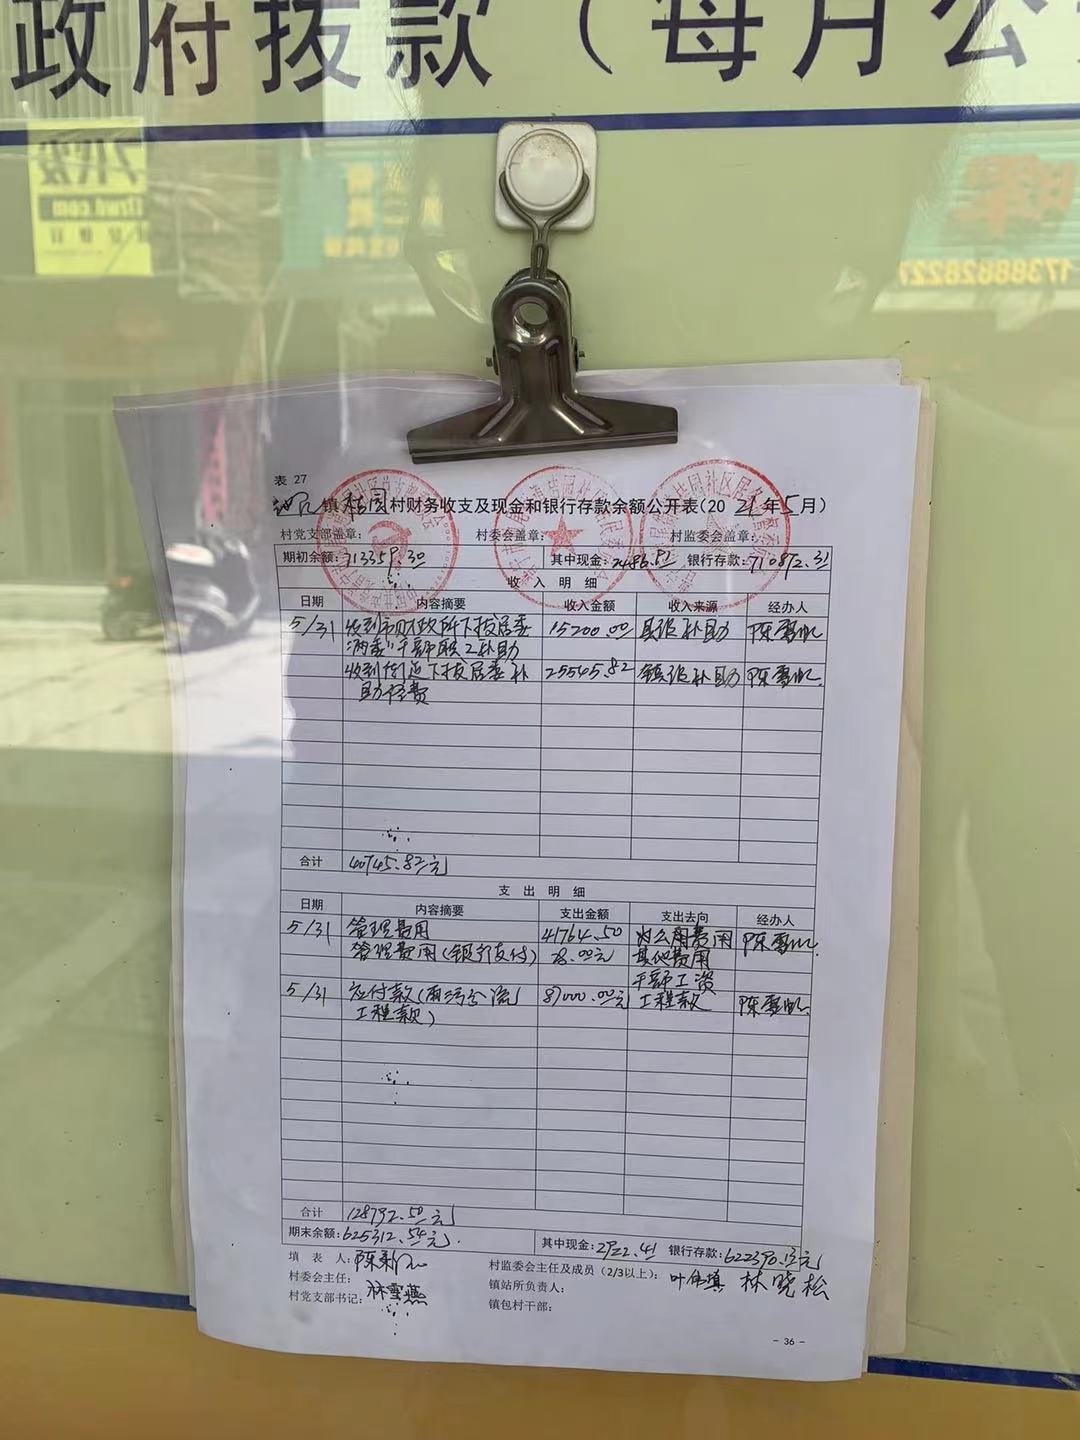 政府拨款（每月公
17388828227
表 27
镇桂园村财务收支及现金和银行存款余额公开表(2021年5月)
村党支部盖章: 村委会盖章: 村监委会盖章:
期初余额:713359.30 其中现金:2486.51 银行存款:710872.31
收 入 明 细
日期 内容摘要 收入金额 收入来源 经办人
5/31 收到市财政所下拨居委 15200.00 县级补助
"两委"干部职工补助
收到街道下拨居委补 25545.82 镇级补助
助经费
合计 40745.82元
支 出 明 细
日期 内容摘要 支出金额 支出去向 经办人
5/31 管理费用 41764.50 办公用费用
管理费用(银行支付) 28.00元 其他费用
干部工资
5/31 应付款(雨污分流 87000.00元 工程款
工程款)
合计 128792.50元
期末余额:625312.54元. 其中现金:2922.41 银行存款:622390.13元
填 表 人:
村委会主任:
村党支部书记: 林雪燕
村监委会主任及成员（2/3以上）: 林晓松
镇站所负责人:
镇包村干部:
- 36 -